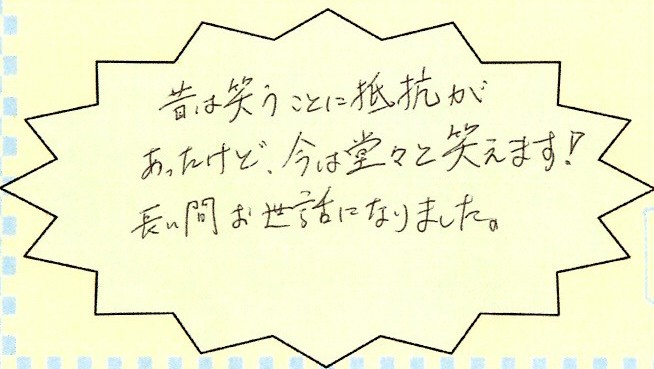 昔は笑うことに抵抗が
あったけど、今は堂々と笑えます!
長い間お世話になりました。